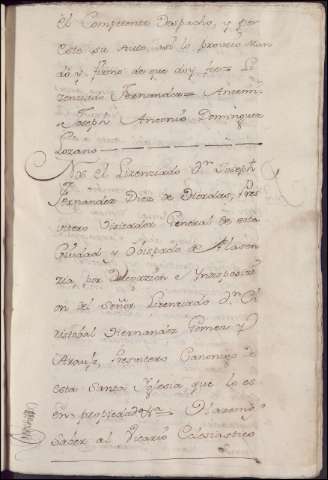 el Competente Despacho, y por
este su Auto, así lo proveio man
dó y firmó de que doy fee= Li
zenciado Fernandez= Antemi=
Joseph Antonio Dominguez
Lozano
Nos el Lizenciado Dn. Joseph
Fernandez Diez de
Visitador General de esta
Ciudad y Obispado de
por Delegazion e
on del Señor Lizenciado Dn. Ch
ristobal Hernandez Gomez y
Araujo, Presvitero Canonigo de
esta Santa Iglesia que lo es
en propiedad &a= Hazemos
saver al Vicario Eclesiastico